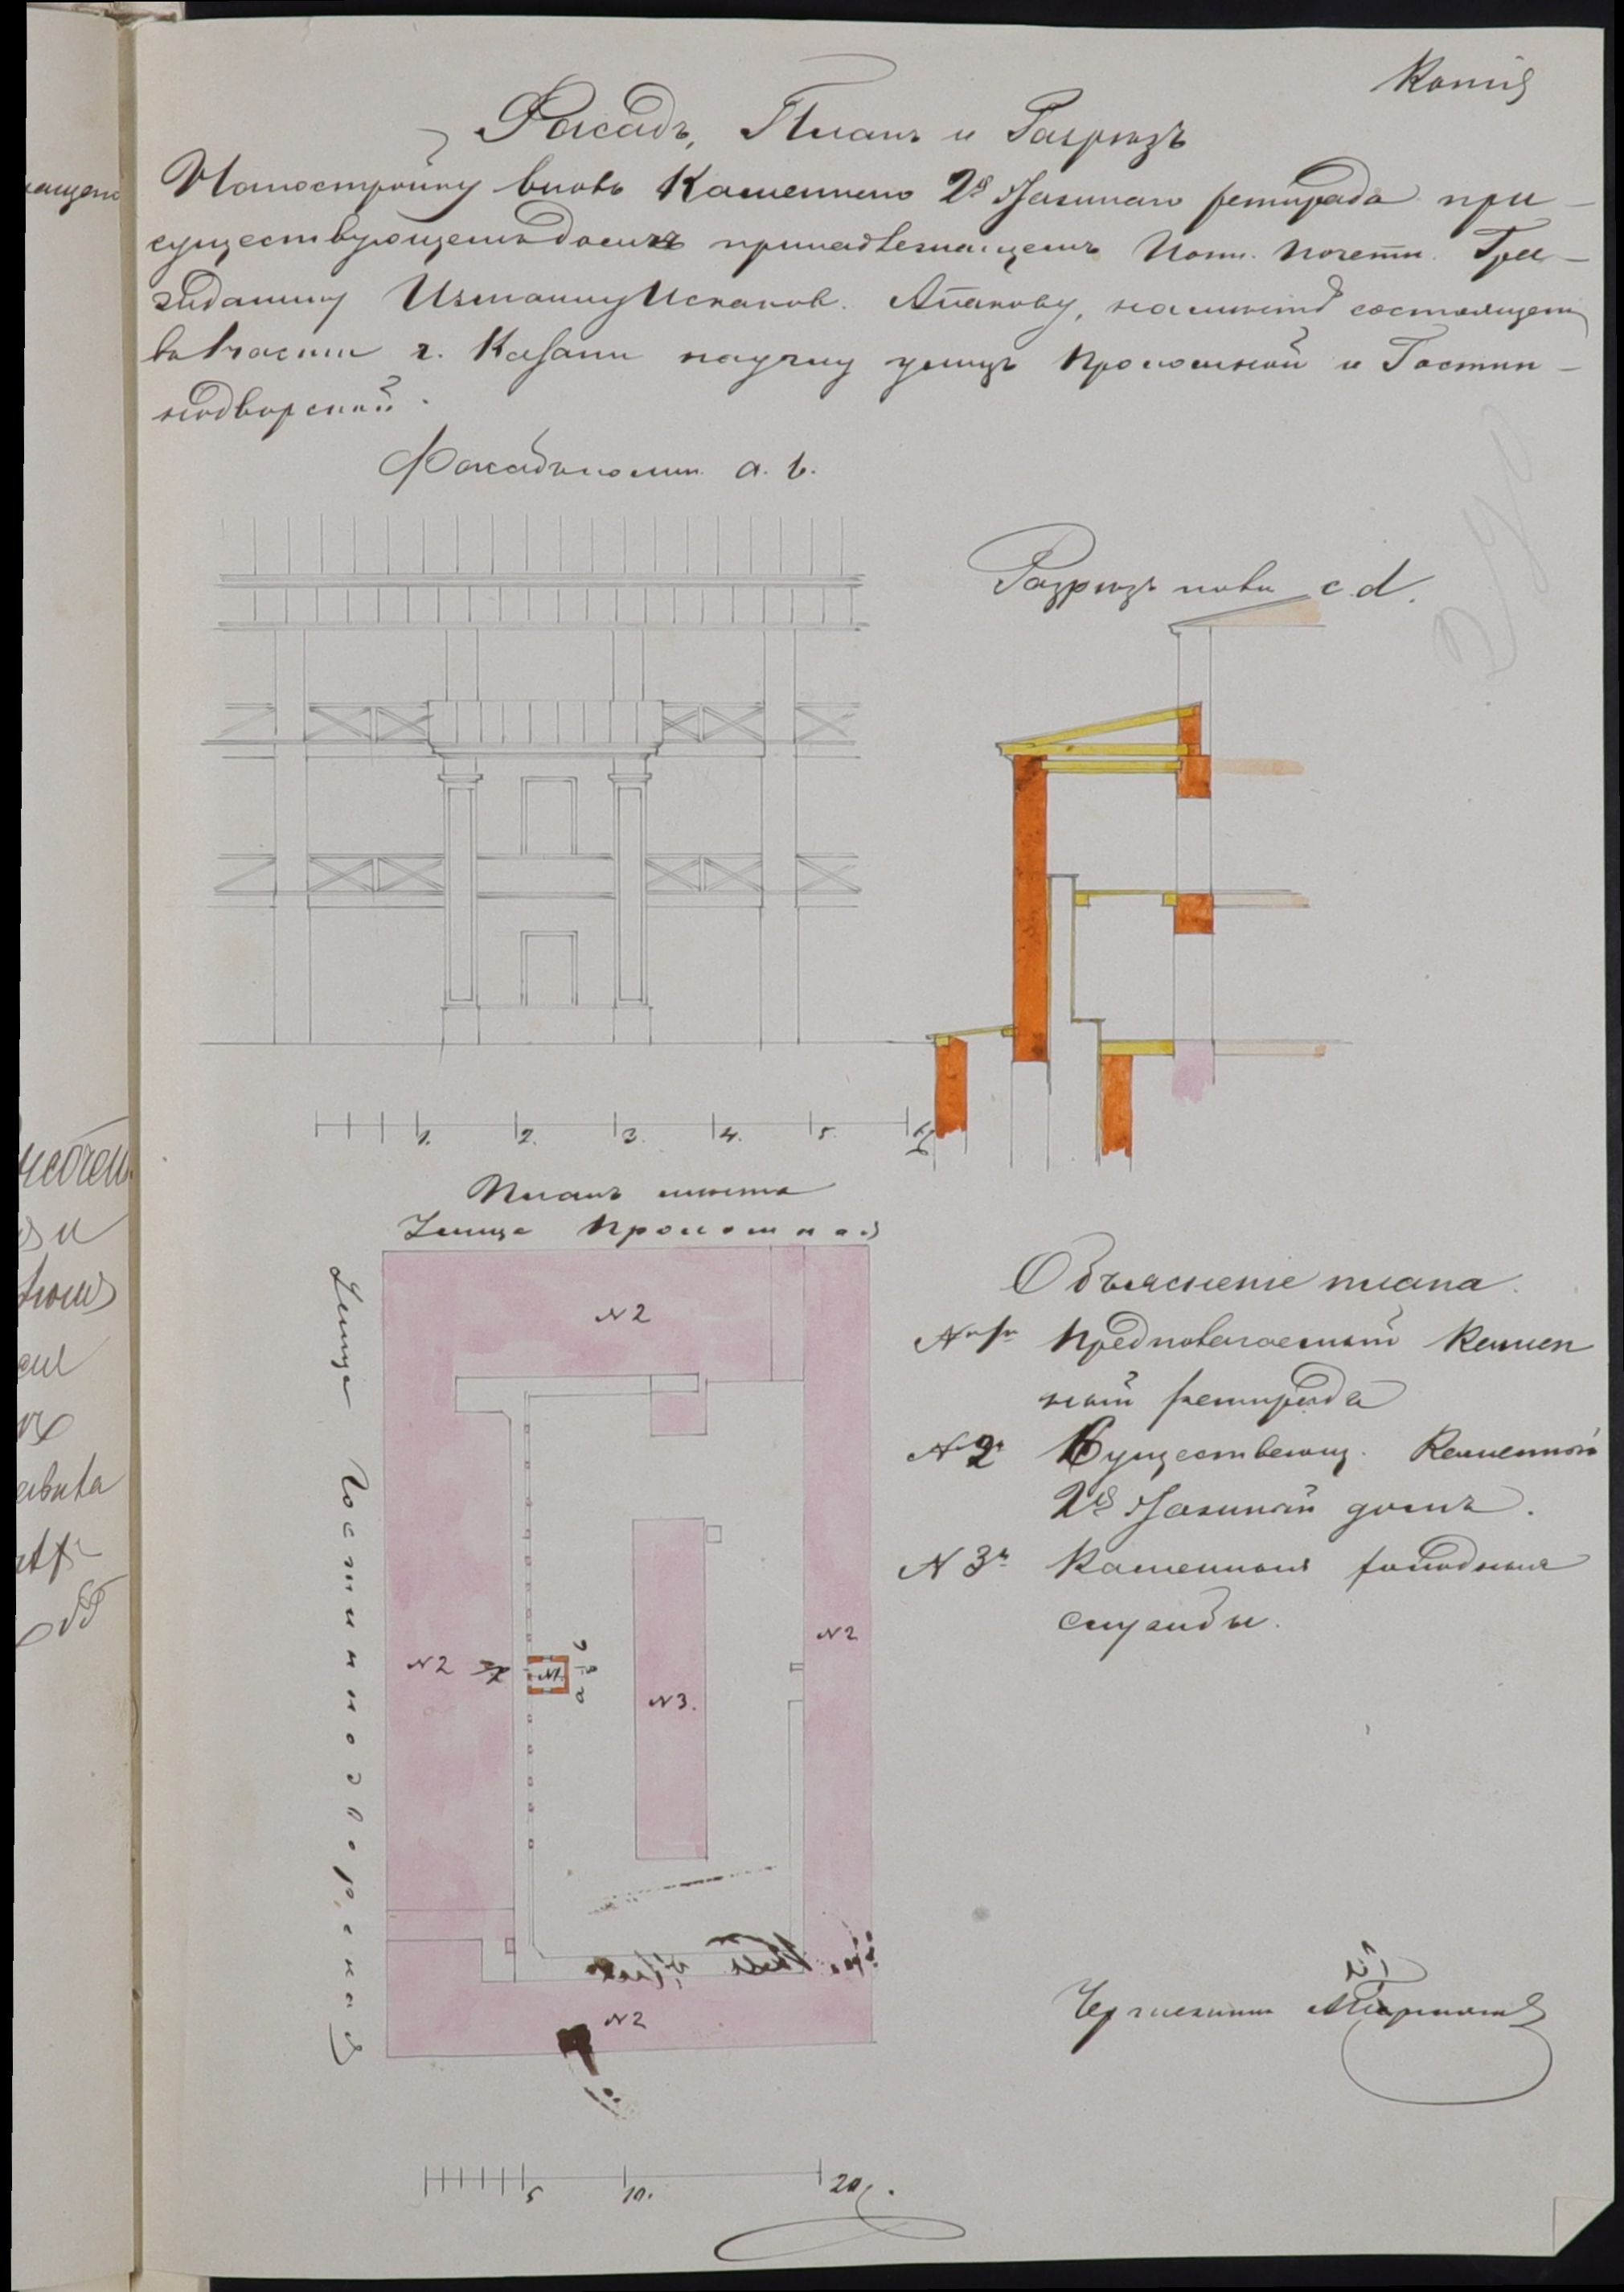 Копія
Фасадъ, Планъ и Разрѣзъ
На постройку вновь Каменнаго 2х этажнаго ретирада при
существующемъ домѣ принадлежащемъ Пот. Почетн. Гра-
жданину Исхаков. Апакову, на мѣстѣ состоящемъ
въ 1 части г. Казани на углу улицъ Проломной и Гостин-
нодворской.
Фасадъ по лин. a. b.
Разрѣзъ по ли c. d.
1. 2. 3. 4. 5. 6
Планъ мѣста
Улица Проломная
Улица Гостиннодворская
N 2
N 2
N 1.
N 3.
N 2
N 2
Объясненіе плана.
N 1й Предполагаемый Камен
ный ретирадъ
N 2й Существующ. Каменный
2х этажный домъ.
N 3й Каменныя холодныя
службы.
Чертежникъ
5 10. 20